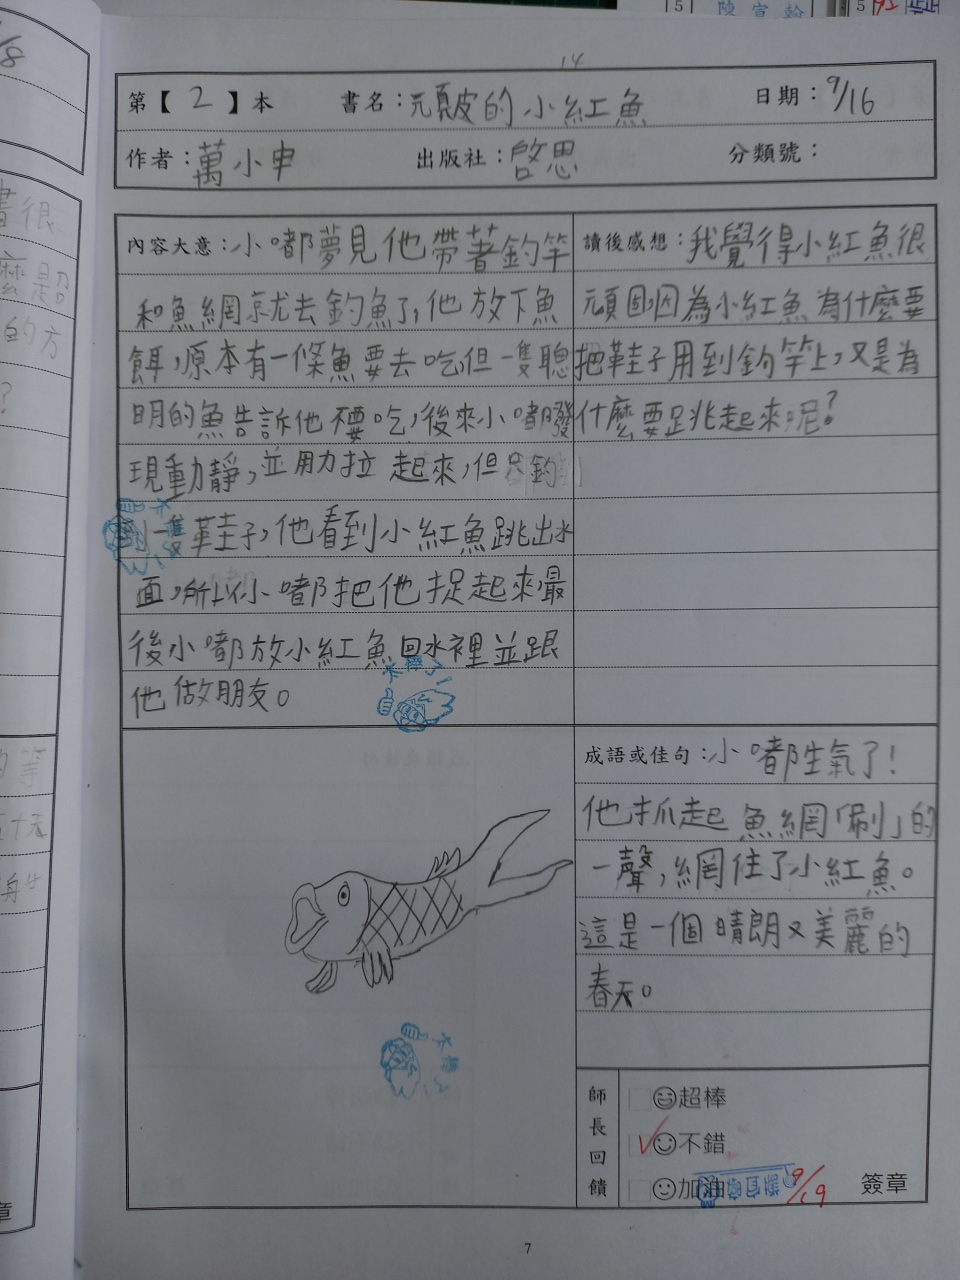 14
第【 2 】本 書名：頑皮的小紅魚 日期：9/16
作者：萬小申 出版社：啓思 分類號：
內容大意：小嘟夢見他帶著釣竿
和魚網就去釣魚了，他放下魚
餌，原本有一條魚要去吃，但一隻聰
明的魚告訴他不要吃，後來小嘟發
現動靜，並用力拉起來，但只釣
到一隻鞋子，他看到小紅魚跳出水
面，所以小嘟把他捉起來，最
後小嘟放小紅魚回水裡並跟
他做朋友。
太棒了！
讀後感想：我覺得小紅魚很
頑固，因為小紅魚為什麼要
把鞋子用到釣竿上，又是為
什麼要跳起來呢？
成語或佳句：小嘟生氣了！
他抓起魚網「唰」的
一聲，網住了小紅魚。
這是一個晴朗又美麗的
春天。
太棒了
師長回饋
超棒
不錯
加油
9/19
簽章
7